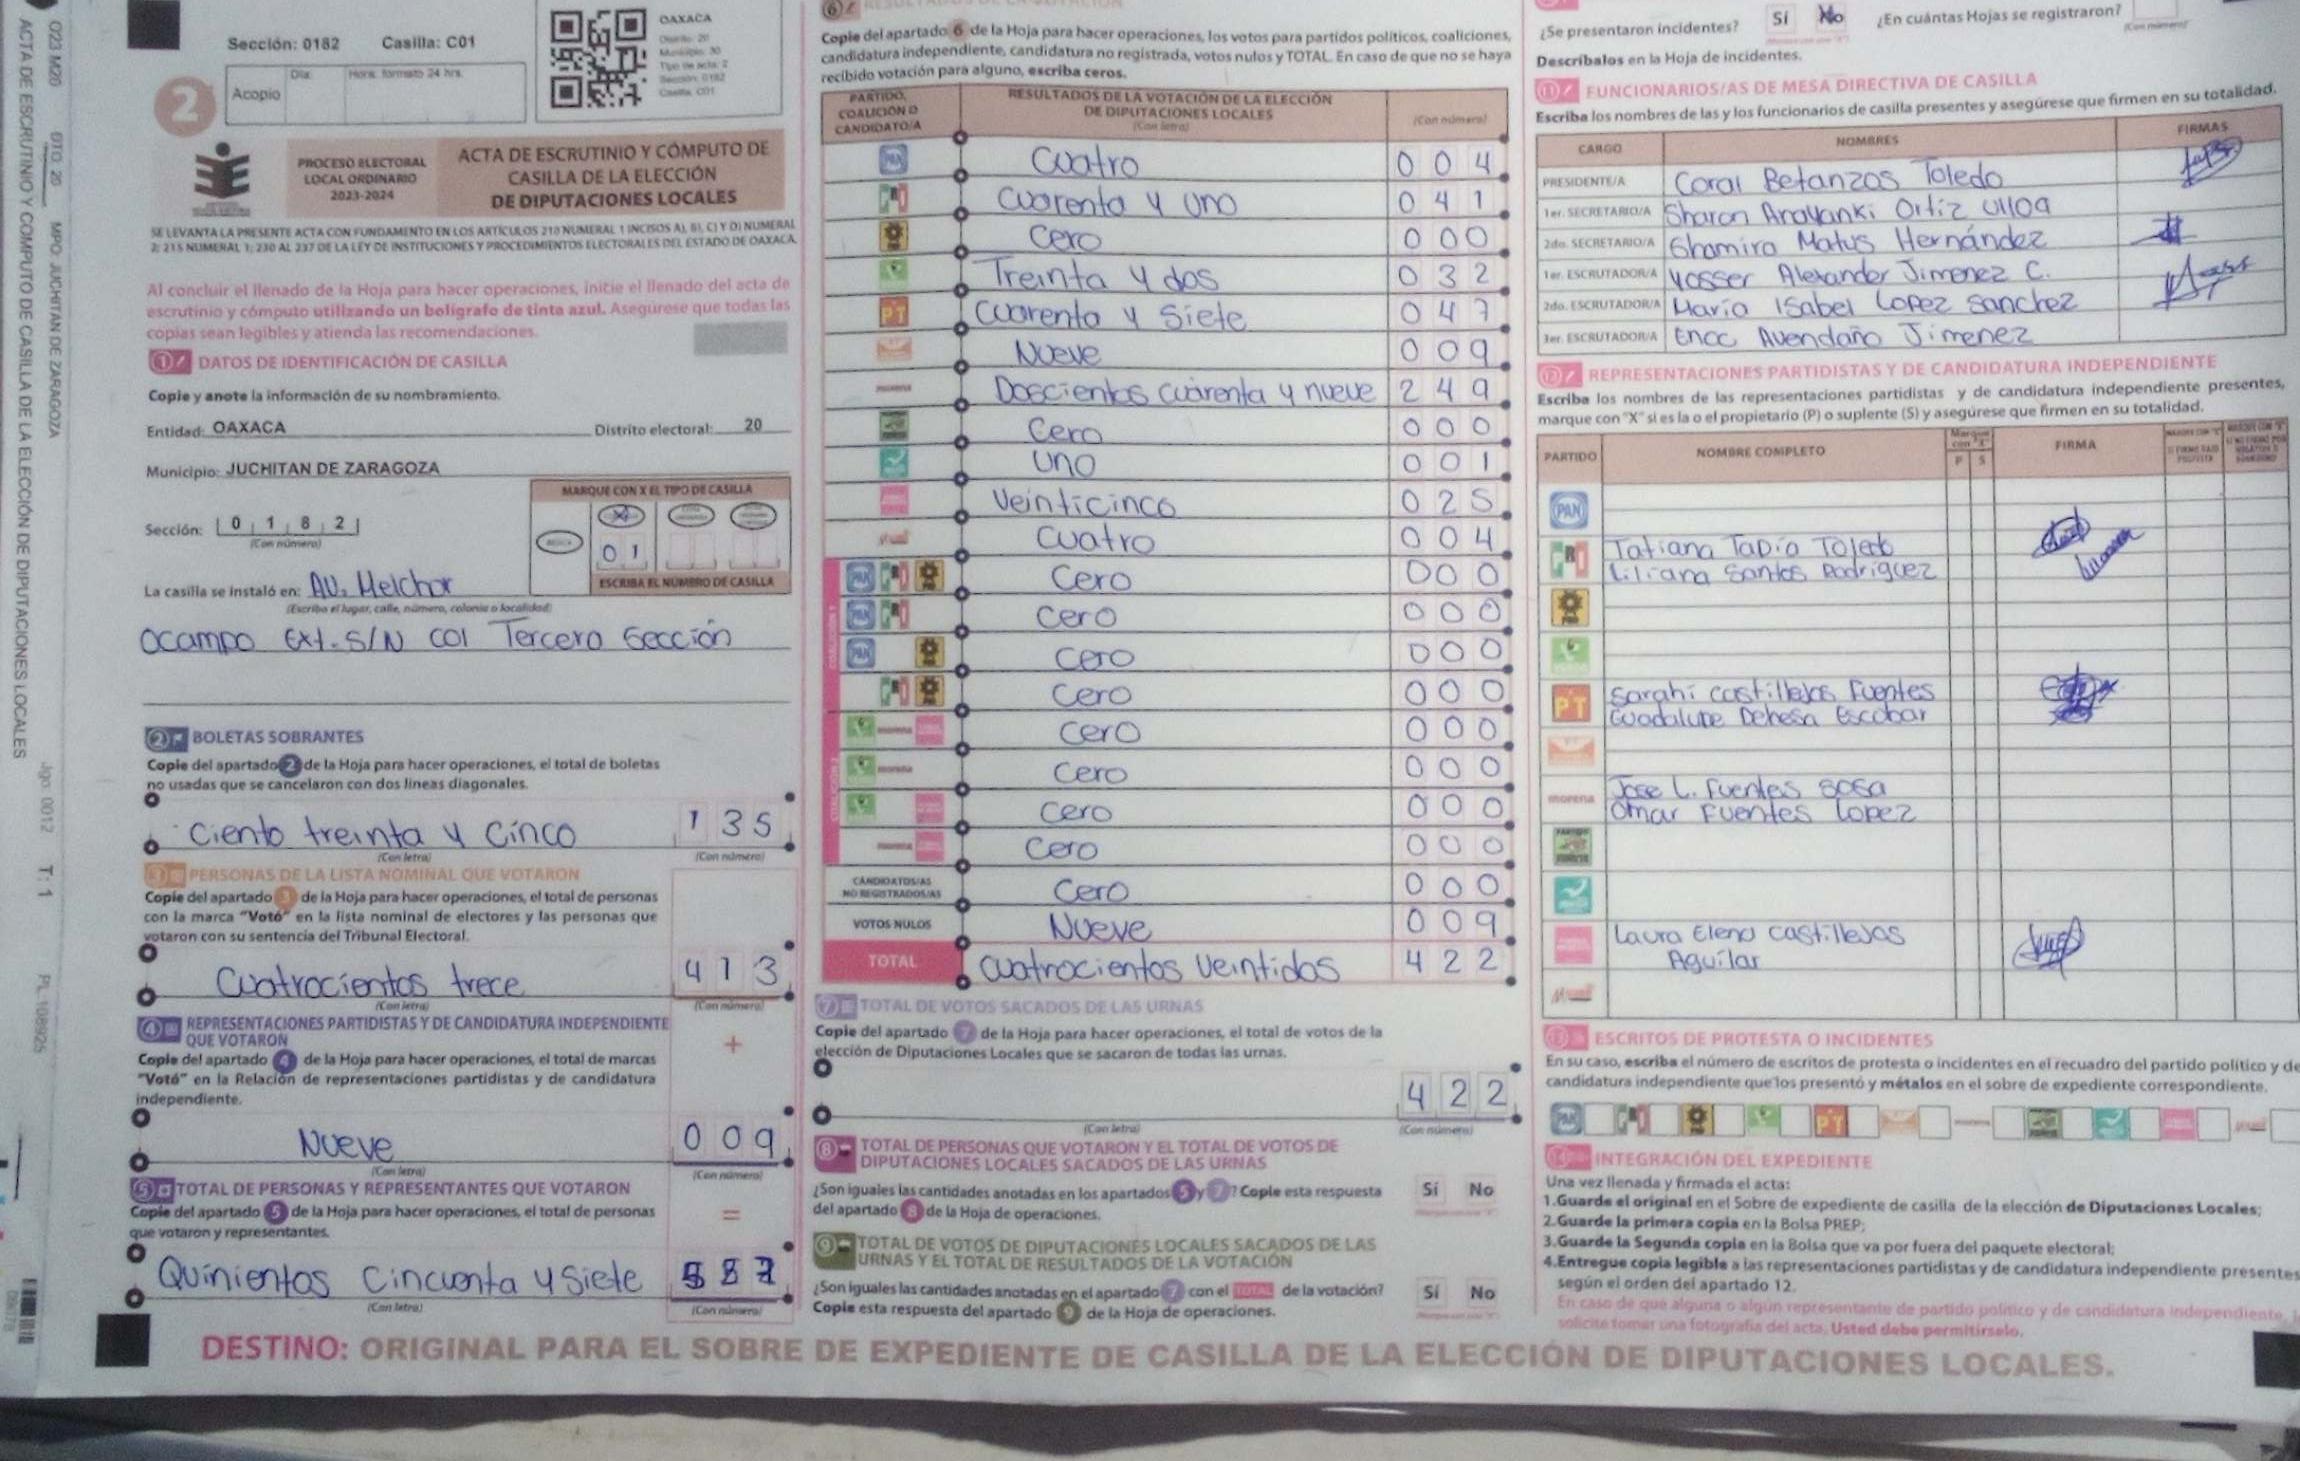 023 M20 DTO. 20 MPO. JUCHITAN DE ZARAGOZA
Jgo. 0012 T: 1 PL. 108925
ACTA DE ESCRUTINIO Y CÓMPUTO DE CASILLA DE LA ELECCIÓN DE DIPUTACIONES LOCALES
Sección: 0182 Casilla: C01
Acopio
Día:
Hora: formato 24 hrs.
2
OAXACA
Distrito: 20
Municipio: 30
Tipo de acta: 2
Sección: 0182
Casilla: C01
PROCESO ELECTORAL
LOCAL ORDINARIO
2023-2024
ACTA DE ESCRUTINIO Y CÓMPUTO DE
CASILLA DE LA ELECCIÓN
DE DIPUTACIONES LOCALES
SE LEVANTA LA PRESENTE ACTA CON FUNDAMENTO EN LOS ARTÍCULOS 210 NUMERAL 1 INCISOS A), B), C) Y D) NUMERAL
2; 215 NUMERAL 1; 230 AL 237 DE LA LEY DE INSTITUCIONES Y PROCEDIMIENTOS ELECTORALES DEL ESTADO DE OAXACA.
Al concluir el llenado de la Hoja para hacer operaciones, inicie el llenado del acta de
escrutinio y cómputo utilizando un bolígrafo de tinta azul. Asegúrese que todas las
copias sean legibles y atienda las recomendaciones.
1 DATOS DE IDENTIFICACIÓN DE CASILLA
Copie y anote la información de su nombramiento.
Entidad: OAXACA Distrito electoral: 20
Municipio: JUCHITAN DE ZARAGOZA
MARQUE CON X EL TIPO DE CASILLA
Sección: 0 1 8 2
(Con número)
0 1
ESCRIBA EL NÚMERO DE CASILLA
La casilla se instaló en: AV. Melchor
(Escriba el lugar, calle, número, colonia o localidad)
Ocampo Ext. S/N COl Tercera Sección
2 BOLETAS SOBRANTES
Copie del apartado 2 de la Hoja para hacer operaciones, el total de boletas
no usadas que se cancelaron con dos líneas diagonales.
Ciento treinta y Cinco 1 3 5
(Con letra) (Con número)
3 PERSONAS DE LA LISTA NOMINAL QUE VOTARON
Copie del apartado 3 de la Hoja para hacer operaciones, el total de personas
con la marca "Votó" en la lista nominal de electores y las personas que
votaron con su sentencia del Tribunal Electoral.
Cuatrocientos trece 4 1 3
(Con letra) (Con número)
4 REPRESENTACIONES PARTIDISTAS Y DE CANDIDATURA INDEPENDIENTE
QUE VOTARON
+
Copie del apartado 4 de la Hoja para hacer operaciones, el total de marcas
"Votó" en la Relación de representaciones partidistas y de candidatura
independiente.
Nueve 0 0 9
(Con letra) (Con número)
5 TOTAL DE PERSONAS Y REPRESENTANTES QUE VOTARON
=
Copie del apartado 5 de la Hoja para hacer operaciones, el total de personas
que votaron y representantes.
Quinientos Cincuenta y Siete
(Con letra) (Con número)
6
Copie del apartado 6 de la Hoja para hacer operaciones, los votos para partidos políticos, coaliciones,
candidatura independiente, candidatura no registrada, votos nulos y TOTAL. En caso de que no se haya
recibido votación para alguno, escriba ceros.
PARTIDO,
COALICIÓN O
CANDIDATO/A
RESULTADOS DE LA VOTACIÓN DE LA ELECCIÓN
DE DIPUTACIONES LOCALES
(Con letra)
(Con número)
PAN Cuatro 0 0 4
PRI Cuarenta y Uno 0 4 1
PRD Cero 0 0 0
Treinta y dos 0 3 2
PT Cuarenta y Siete 0 4 7
Nueve 0 0 9
morena Doscientos cuarenta y nueve 2 4 9
Cero 0 0 0
Uno 0 0 1
Veinticinco 0 2 5
Cuatro 0 0 4
PAN PRI PRD Cero 0 0 0
PAN PRI Cero 0 0 0
PAN PRD Cero 0 0 0
PRI PRD Cero 0 0 0
morena Cero 0 0 0
morena Cero 0 0 0
Cero 0 0 0
morena Cero 0 0 0
CANDIDATOS/AS
NO REGISTRADOS/AS Cero 0 0 0
VOTOS NULOS Nueve 0 0 9
TOTAL Cuatrocientos Veintidos 4 2 2
7 TOTAL DE VOTOS SACADOS DE LAS URNAS
Copie del apartado 7 de la Hoja para hacer operaciones, el total de votos de la
elección de Diputaciones Locales que se sacaron de todas las urnas.
4 2 2
(Con letra) (Con número)
8 TOTAL DE PERSONAS QUE VOTARON Y EL TOTAL DE VOTOS DE
DIPUTACIONES LOCALES SACADOS DE LAS URNAS
¿Son iguales las cantidades anotadas en los apartados 5 y 7? Copie esta respuesta Sí No
del apartado 8 de la Hoja de operaciones.
9 TOTAL DE VOTOS DE DIPUTACIONES LOCALES SACADOS DE LAS
URNAS Y EL TOTAL DE RESULTADOS DE LA VOTACIÓN
¿Son iguales las cantidades anotadas en el apartado 7 con el TOTAL de la votación? Sí No
Copie esta respuesta del apartado 9 de la Hoja de operaciones.
¿Se presentaron incidentes? Sí No ¿En cuántas Hojas se registraron?
(Con número)
Descríbalos en la Hoja de incidentes.
11 FUNCIONARIOS/AS DE MESA DIRECTIVA DE CASILLA
Escriba los nombres de las y los funcionarios de casilla presentes y asegúrese que firmen en su totalidad.
CARGO NOMBRES FIRMAS
PRESIDENTE/A Coral Betanzos Toledo
1er. SECRETARIO/A Sharon Arayanki Ortiz Ulloa
2do. SECRETARIO/A Ghamira Matus Hernández
1er. ESCRUTADOR/A Yosser Alexander Jimenez C.
2do. ESCRUTADOR/A María Isabel Lopez Sanchez
3er. ESCRUTADOR/A Enoc Avendaño Jimenez
12 REPRESENTACIONES PARTIDISTAS Y DE CANDIDATURA INDEPENDIENTE
Escriba los nombres de las representaciones partidistas y de candidatura independiente presentes,
marque con "X" si es la o el propietario (P) o suplente (S) y asegúrese que firmen en su totalidad.
PARTIDO NOMBRE COMPLETO Marque con "X" P S FIRMA
PAN
PRI Tatiana Tapia Toledo
Liliana Santos Rodriguez
PRD
PT Sarahí Castillejos Fuentes
Guadalupe Dehesa Escobar
morena Jose L. Fuentes Sosa
Omar Fuentes Lopez
Laura Elena Castillejos
Aguilar
13 ESCRITOS DE PROTESTA O INCIDENTES
En su caso, escriba el número de escritos de protesta o incidentes en el recuadro del partido político y de
candidatura independiente que los presentó y métalos en el sobre de expediente correspondiente.
PAN PRI PRD PT morena
14 INTEGRACIÓN DEL EXPEDIENTE
Una vez llenada y firmada el acta:
1.Guarde el original en el Sobre de expediente de casilla de la elección de Diputaciones Locales;
2.Guarde la primera copia en la Bolsa PREP;
3.Guarde la Segunda copia en la Bolsa que va por fuera del paquete electoral;
4.Entregue copia legible a las representaciones partidistas y de candidatura independiente presentes
según el orden del apartado 12.
En caso de que alguna o algún representante de partido político y de candidatura independiente,
solicite tomar una fotografía del acta, Usted debe permitírselo.
DESTINO: ORIGINAL PARA EL SOBRE DE EXPEDIENTE DE CASILLA DE LA ELECCIÓN DE DIPUTACIONES LOCALES.